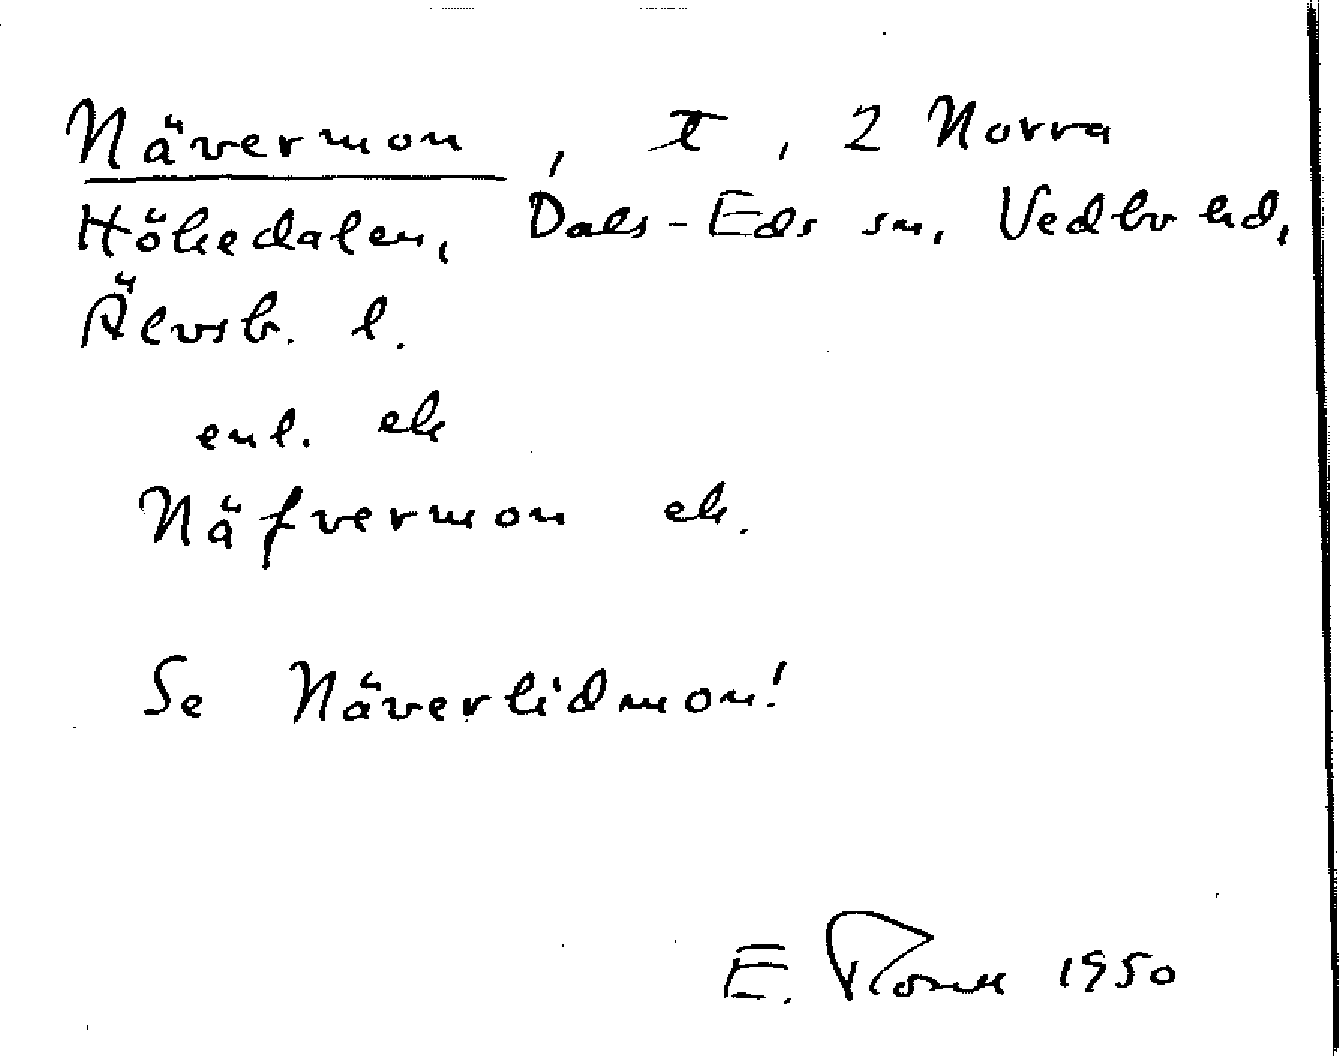 Nävermon, t, 2 Norra
Hökedalen, Dals-Eds sn, Vedbo hd,
Älvsb. l.
enl. ek
Näfvermon ek.
Se Näverlidmon!
E. 1950